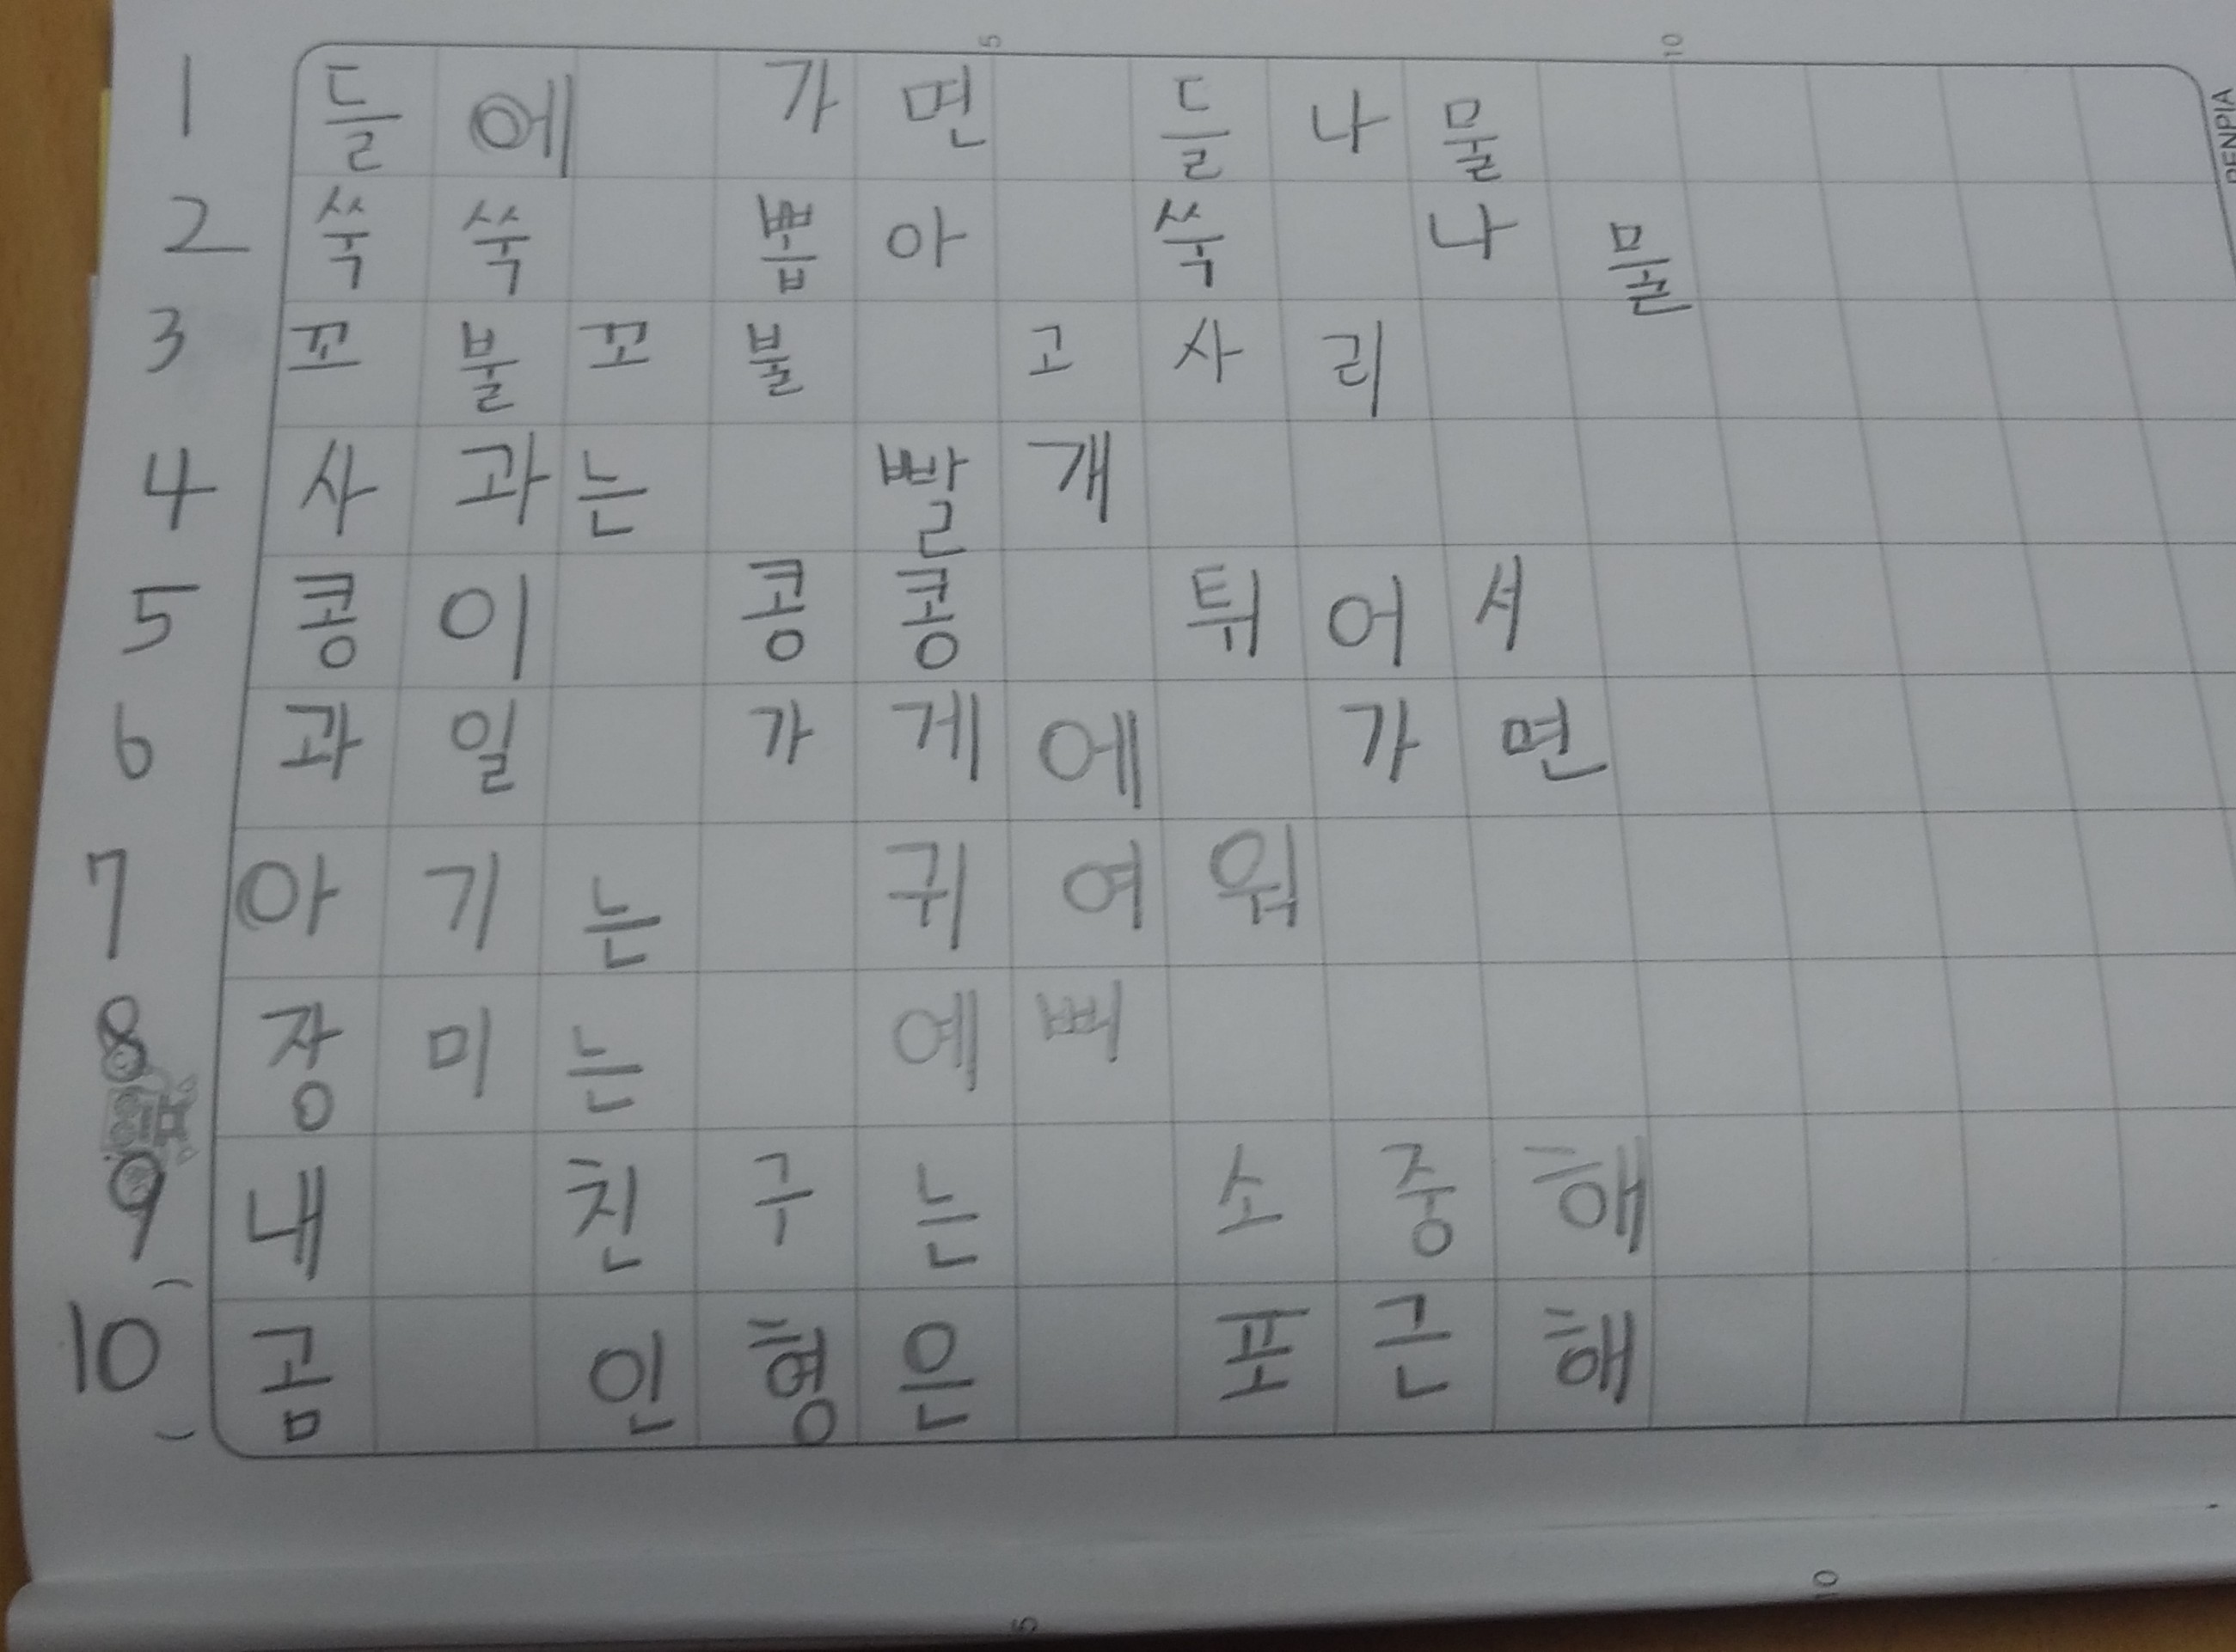 5 10
1 들에 가면 들나물
2 쑥쑥 뽑아 쑥 나물
3 꼬불꼬불 고사리
4 사과는 빨개
5 콩이 콩콩 튀어서
6 과일 가게에 가면
7 아기는 귀여워
8 장미는 예뻐
9 내 친구는 소중해
10 곰 인형은 포근해
5 10